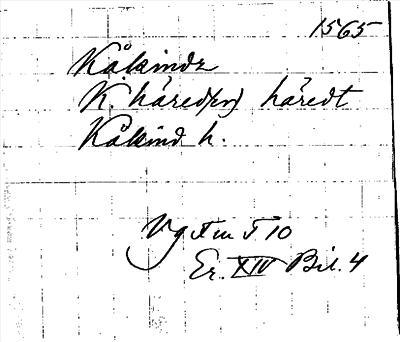 1565
Kåkindz
K. häred(en) häredt
Kåkind h.
Vg Fm F 10
Er. XIV Bil. 4